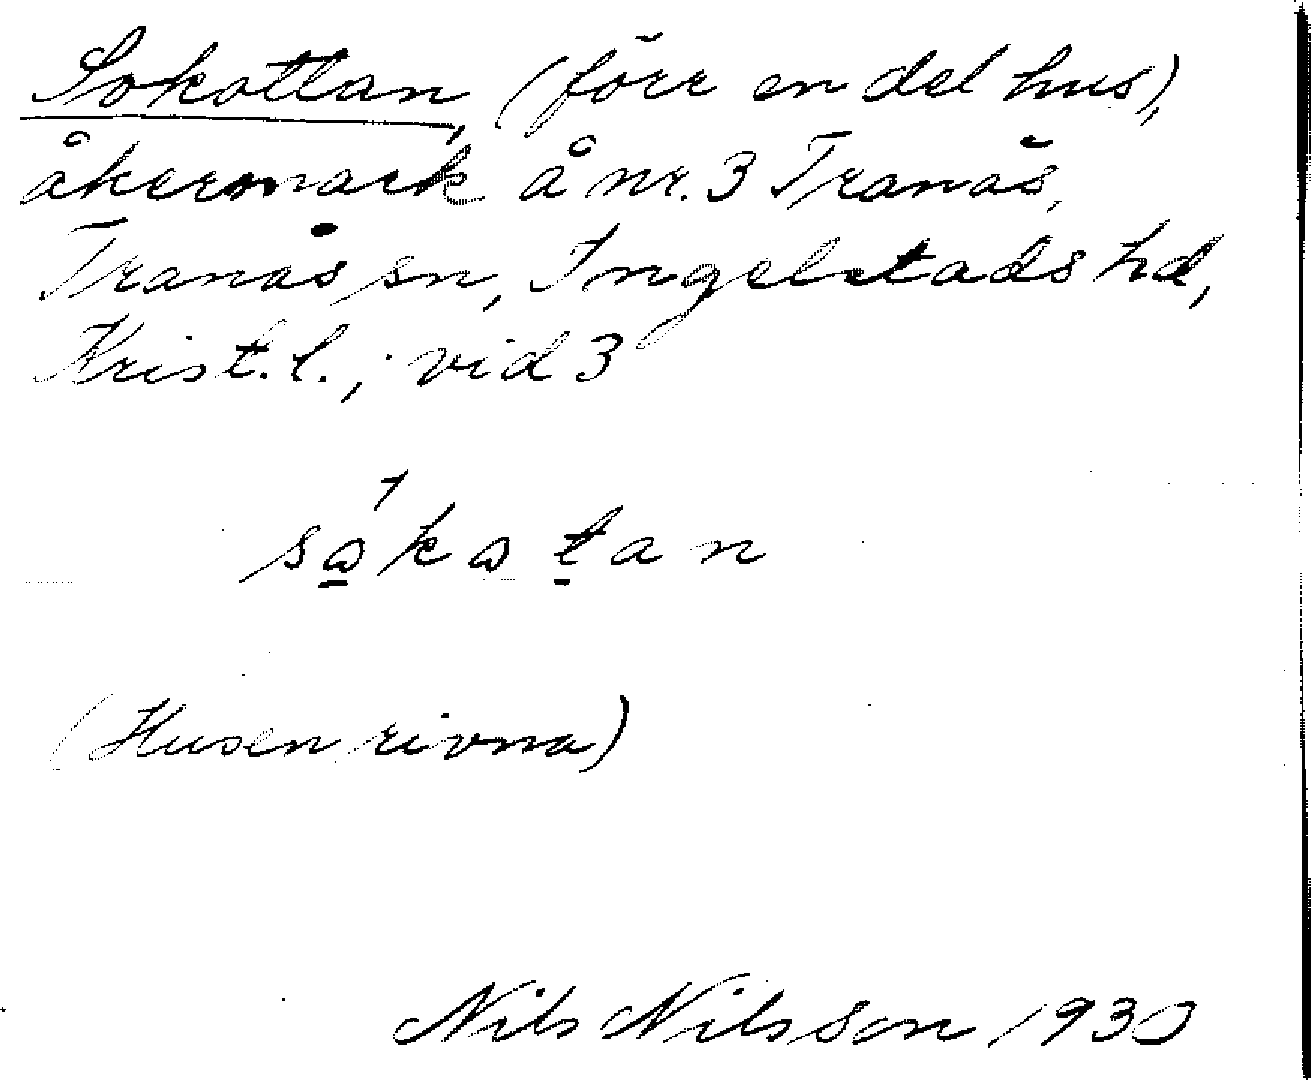 Sokottan, (förr en del hus),
åkermark å nr. 3 Tranås,
Tranås sn, Ingelstads hd,
Krist. l.; vid 3
sɷ̱́kɷṯan
(Husen rivna)
Nils Nilsson 1930